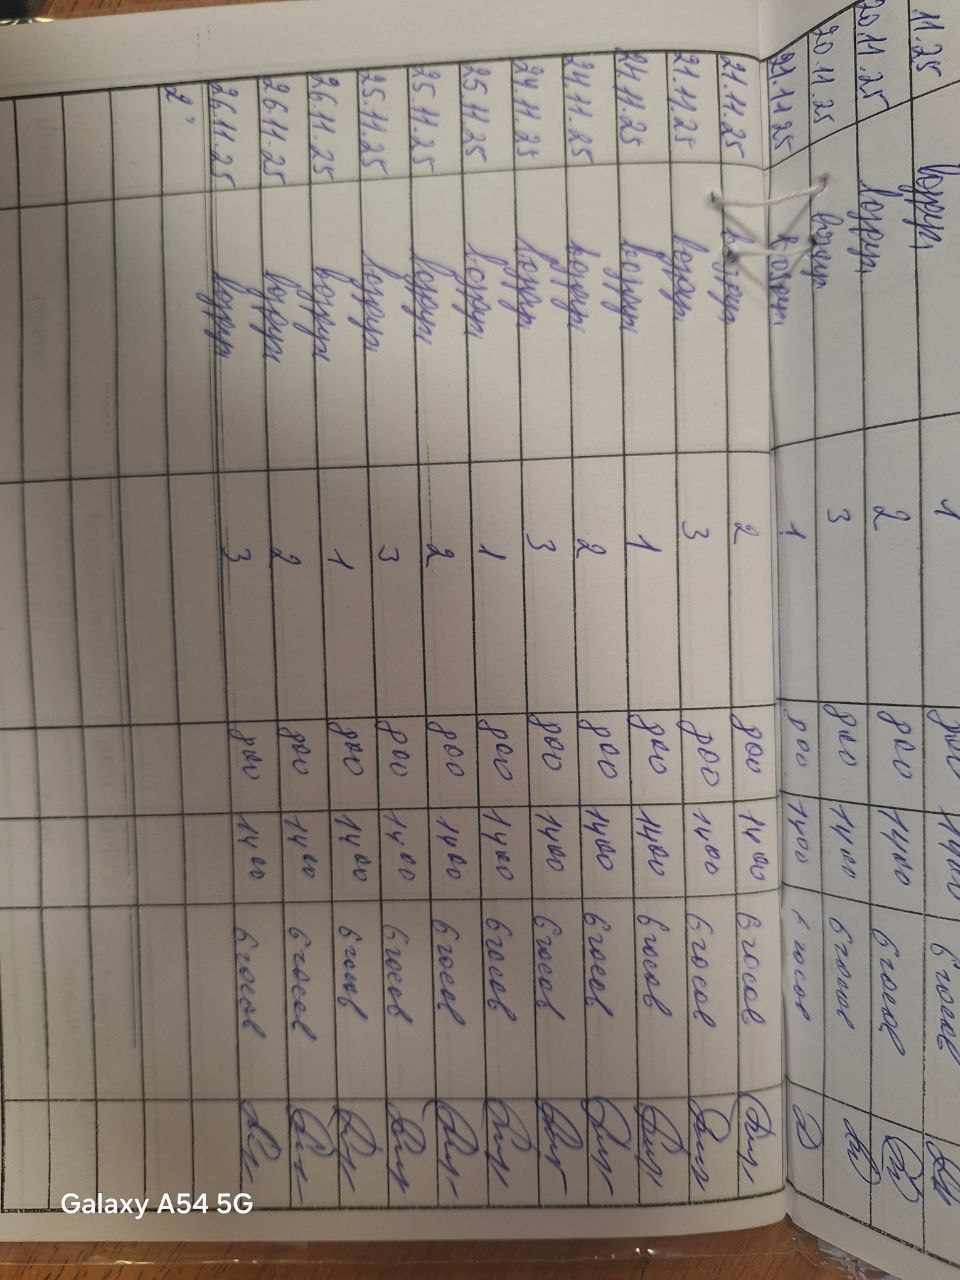 11.25 1 800 1400 6 часов
20.11.25 2 800 1400 6 часов
20.11.25 3 800 1400 6 часов
21.11.25 1 800 1400 6 часов
21.11.25 2 800 1400 6 часов
21.11.25 3 800 1400 6 часов
24.11.25 1 800 1400 6 часов
24.11.25 2 800 1400 6 часов
24.11.25 3 800 1400 6 часов
25.11.25 1 800 1400 6 часов
25.11.25 2 800 1400 6 часов
25.11.25 3 800 1400 6 часов
26.11.25 1 800 1400 6 часов
26.11.25 2 800 1400 6 часов
26.11.25 3 800 1400 6 часов
2
Galaxy A54 5G